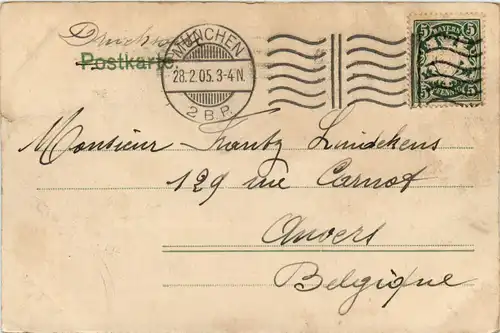 Drucksa
Postkarte
MÜNCHEN
28.2.05.3-4N.
2 B.P.
5 BAYERN 5
5 PFENNIG 5
Monsieur Frantz Lindekens
129 rue Carnot
Anvers
Belgique